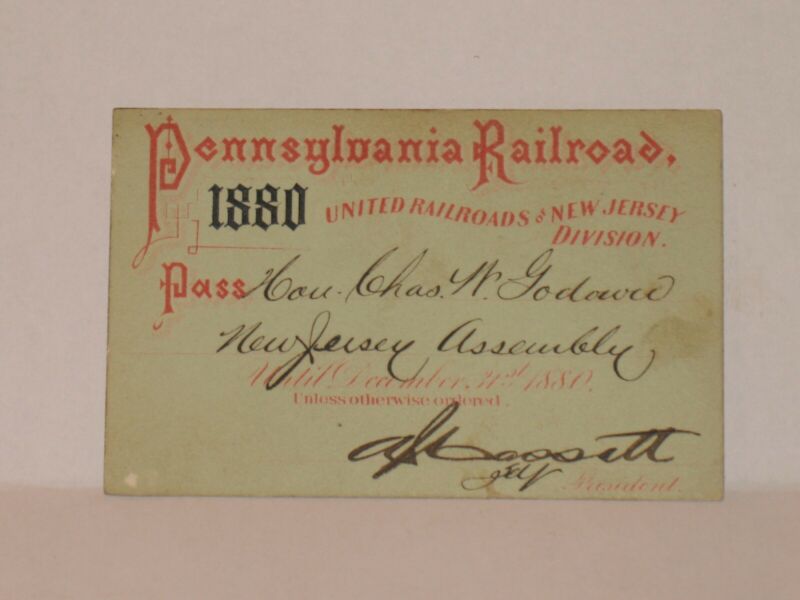 Pennsylvania Railroad.
1880 UNITED RAILROADS OF NEW JERSEY
DIVISION.
Pass Hon. Chas. W. Godown
New Jersey Assembly
Until December 31st 1880.
Unless otherwise ordered.
President.